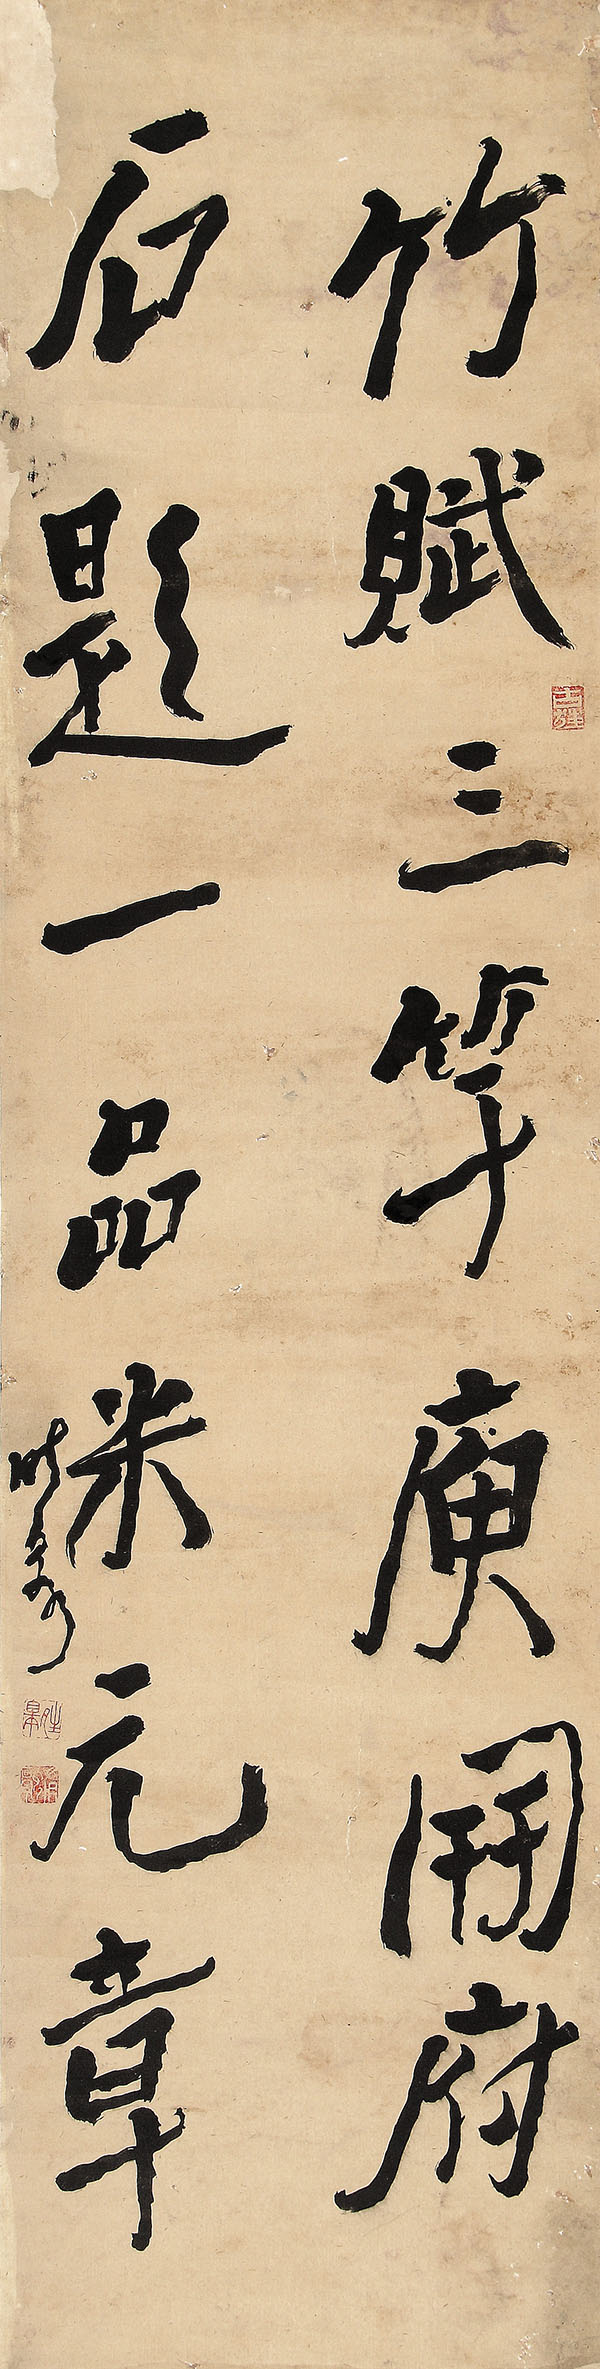 竹賦三竿庾開府
石題一品米元章